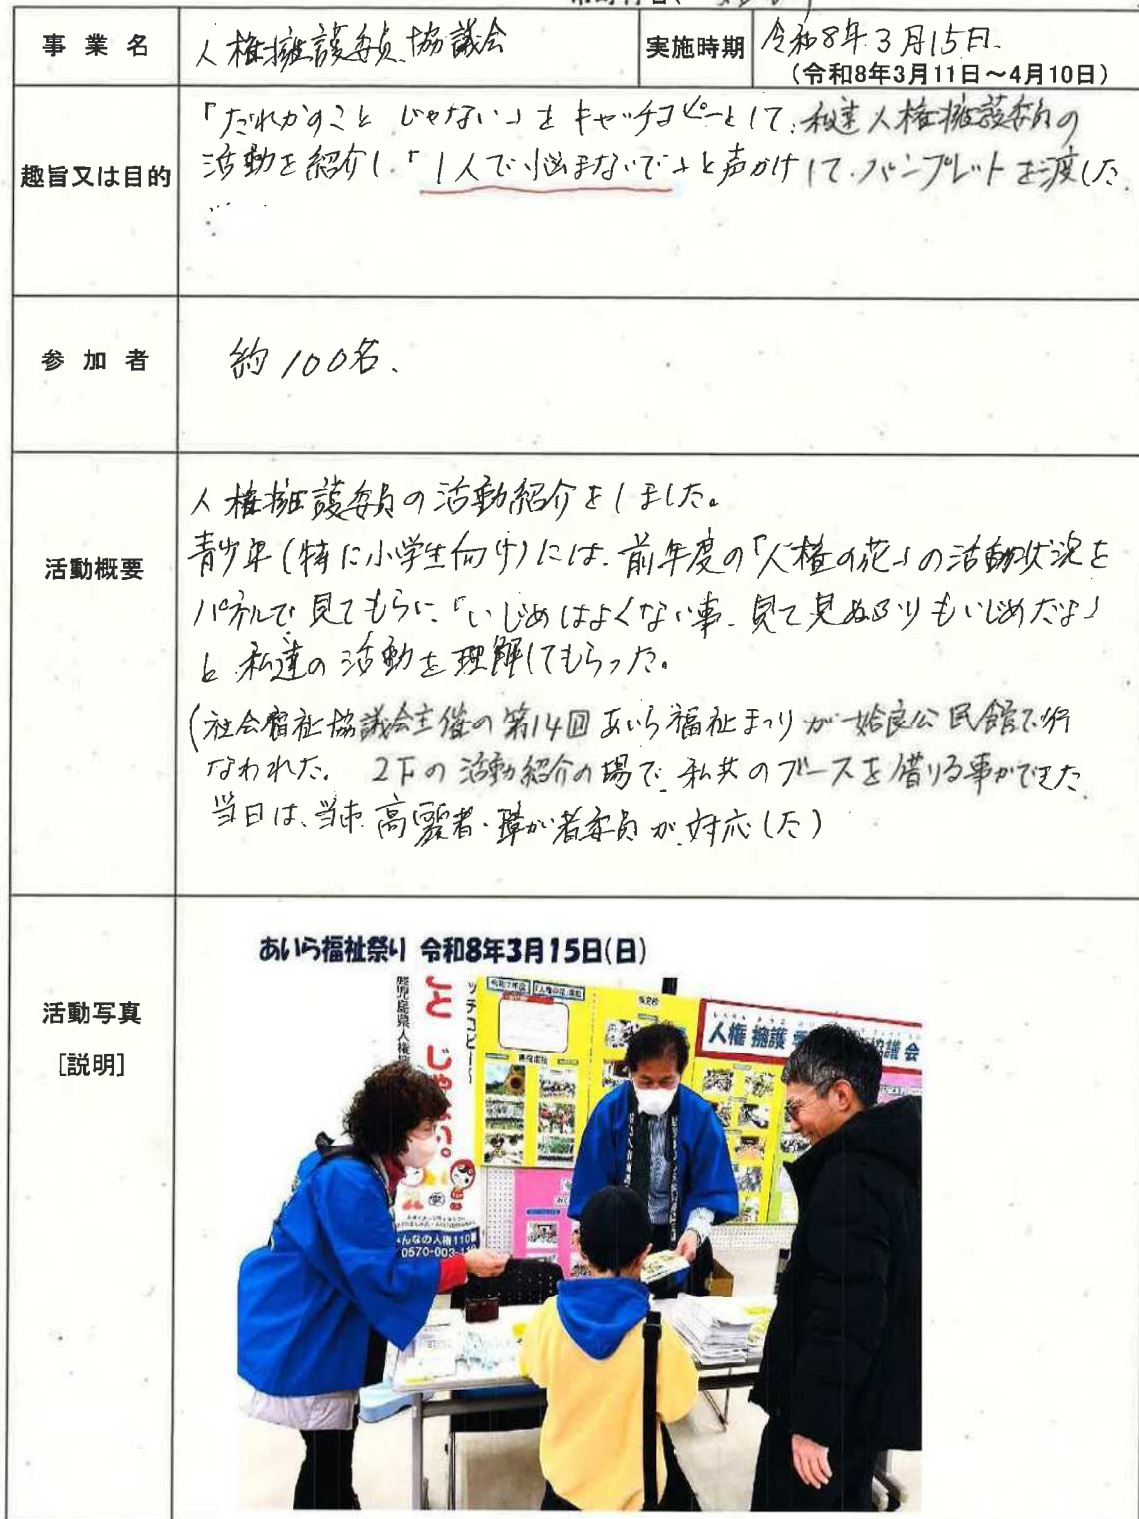 事業名
人権擁護委員協議会
実施時期
令和8年3月15日.
(令和8年3月11日～4月10日)
趣旨又は目的
「だれかのこと じゃない」をキャッチコピーとして、私達人権擁護委員の
活動を紹介し、「1人で悩まないで」と声かけして、パンフレットを渡した.
参加者
約100名、
活動概要
人権擁護委員の活動紹介をしました。
青少年(特に小学生向け)には、前年度の「人権の花」の活動状況を
パネルで見てもらい、「いじめはよくない事、見て見ぬふりもいじめだよ」
と私達の活動を理解してもらった。
(社会福祉協議会主催の第14回あいら福祉まつりが姶良公民館で行
なわれた。 2Fの活動紹介の場で、私共のブースを借りる事ができた.
当日は、当市高齢者・障がい者委員が、対応した)
活動写真
[説明]
あいら福祉祭り 令和8年3月15日(日)
こと じゃ い。
ッチコピー
鹿児島県人権
令和7年度 「人権の花」運動
人権 擁護 協議会
みんなの人権110番
0570-003-110